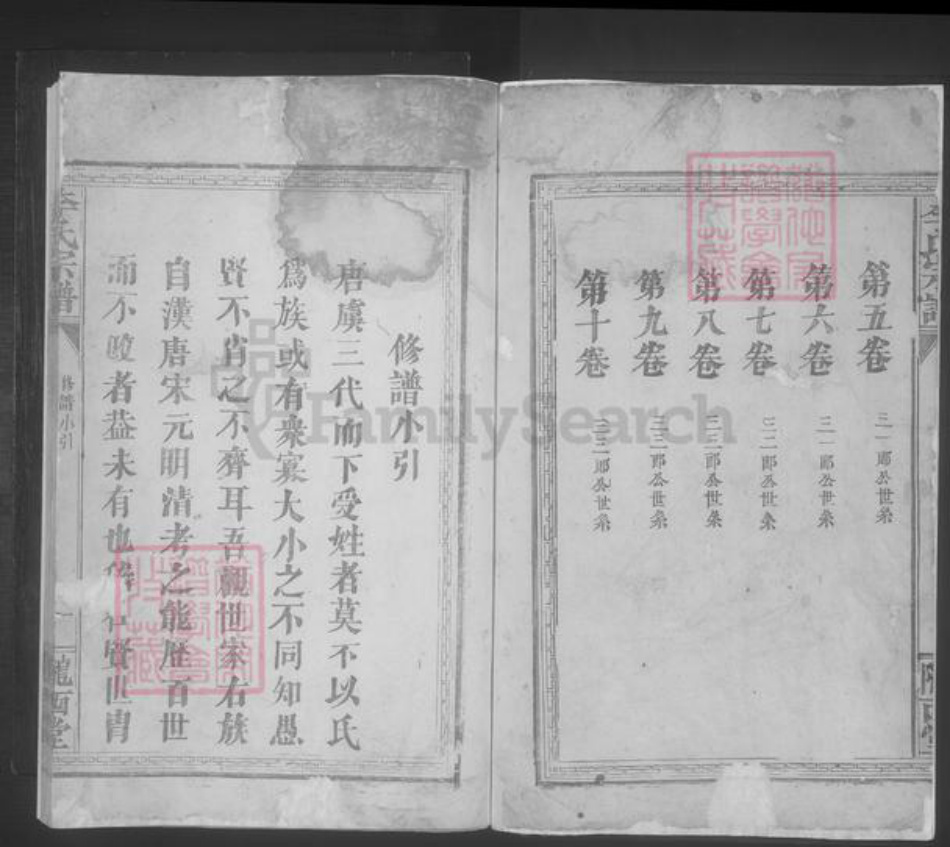 第五卷 三一郎公世系
第六卷 三一郎公世系
第七卷 三二郎公世系
第八卷 三三郎公世系
第九卷 三三郎公世系
第十卷 三三郎公世系
隴西堂
李氏宗譜
修譜小引
唐虞三代而下受姓者莫不以氏
為族或有衆寡大小之不同知愚
賢不肖之不齊耳吾觀世家右族
自漢唐宋元明清考之能歷百世
而不畯者葢未有也 賢世胄
李氏宗譜
修譜小引
一
隴西堂
FamilySearch